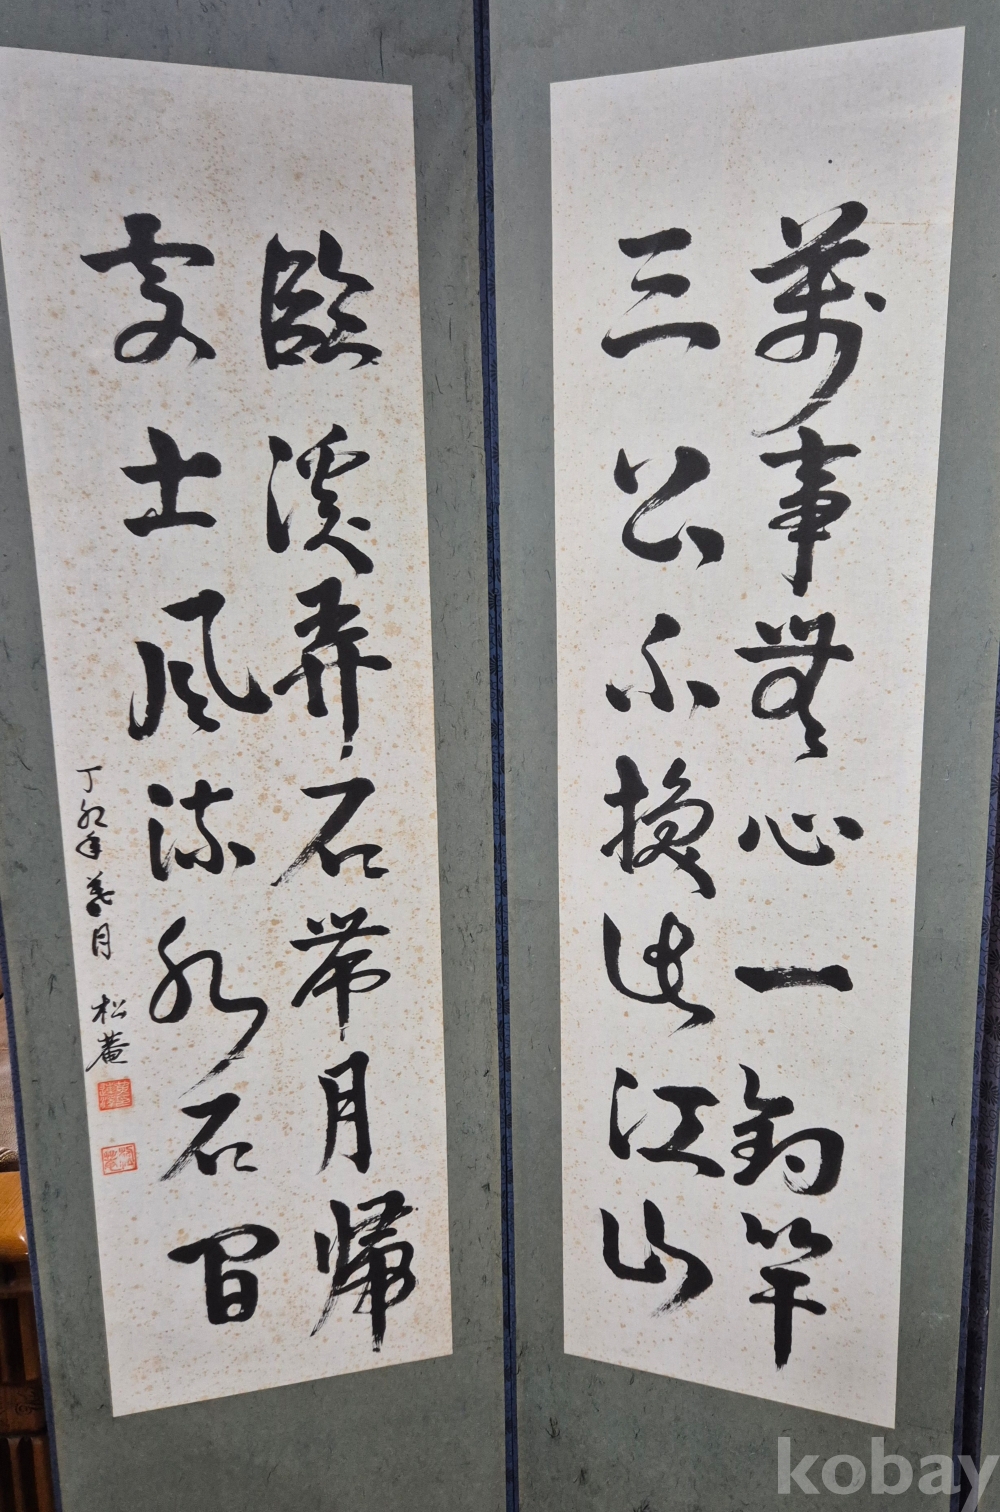 萬事無心一釣竿
三公不換此江山
臨溪弄石帶月歸
處士風流水石間
丁卯年 月 松菴
kobay